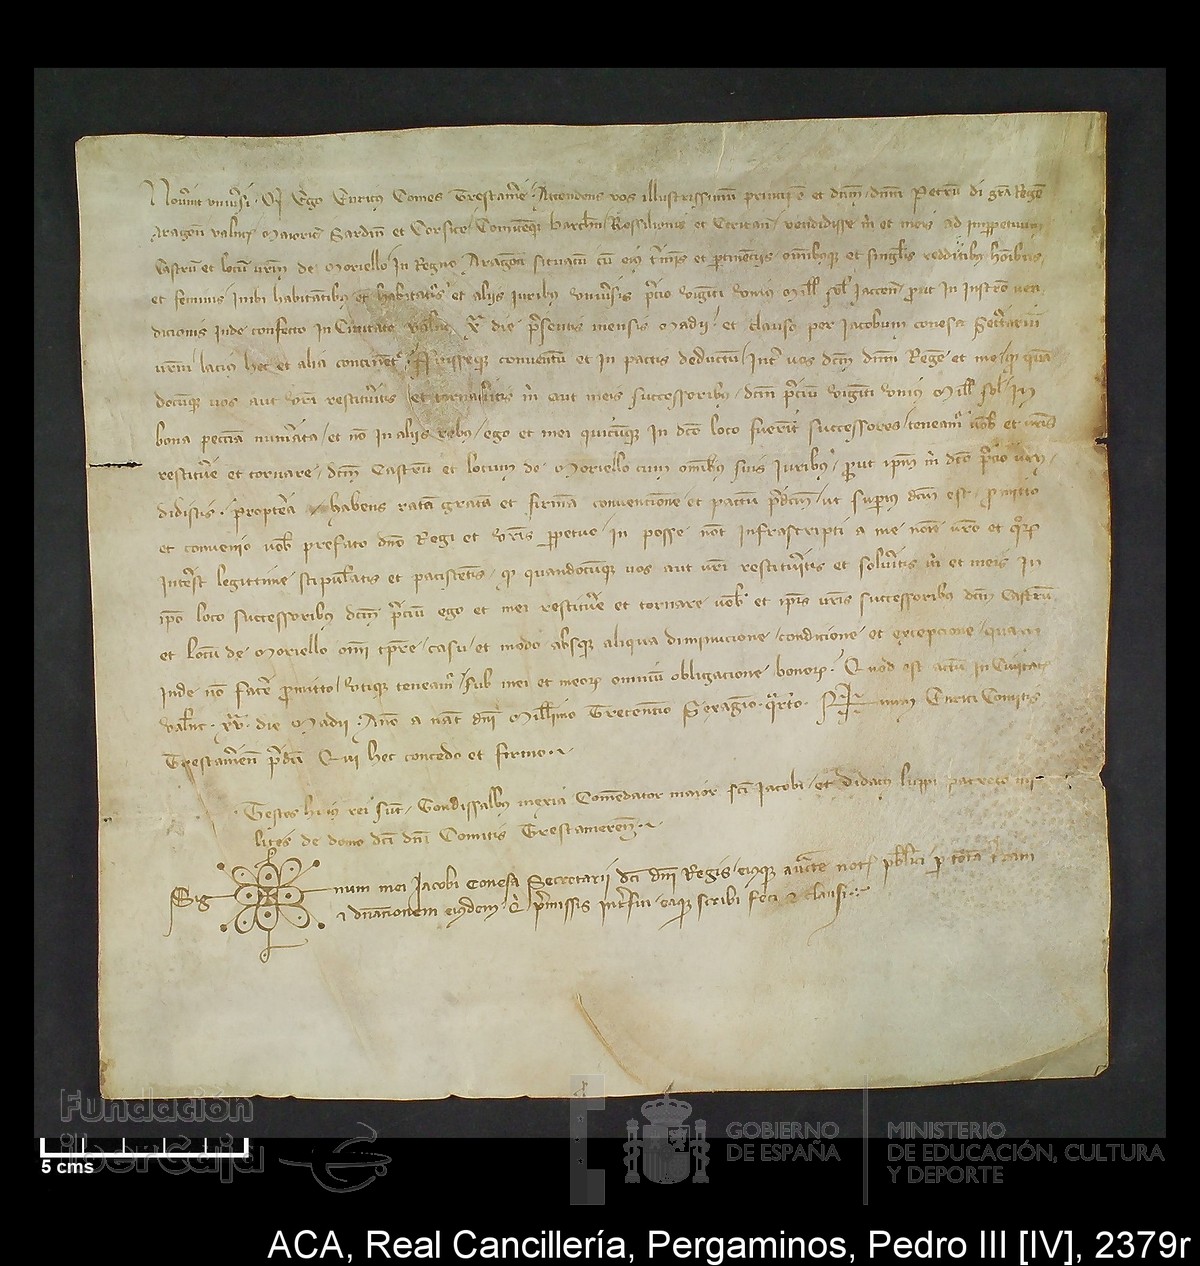 Noverint universi. Qd Ego Enricus Comes Trestamere. Attendens vos illustrissimum principem et dnm. dnm Petrum di gra Regem
Aragon Valenc Maioric Sardin et Corsice Comitemqz Barchn Rossilionis et Ceritan vendidisse mi et meis ad imperpetuum
Castrum et locum vrm de Moriello in Regno Aragon situatum cum eius et pertinenciis omnibusqz et singlis redditibus hoibus
et feminis inibi habitantibus et habitaturis et aliis iuribus universis precio viginti unius Mill sol Jaccen prout in instro ven
dicionis inde confecto in Civitate Valenc die presentis mensis Madii et clauso per Jacobum conesa Secretarium
vrm lacius hec et alia continentur. Fuissetqz conventum et in pactis deductum inter vos dcm dnm Regem et me qd quan
documqz vos aut vri restitueritis et tornaritis mi aut meis successoribus dcm precium viginti unius Mill sol in
bona peccia numerata et non in aliis rebus ego et mei quicumqz in dco loco fuerint successores teneamur vob et vris
restituere et tornare dcm Castrum et locum de Moriello cum omibus suis iuribus prout ipm mi dco precio ven
didistis. Propterea habens ratam gratam et firmam convencionem et pactum predcm ut superius dcm est promitto
et convenio vob prefato dno Regi et vris perpetuo in posse not infrascripti a me noie vro et quorum
interest legittime stipulantis et paciscentis qd quandocumqz vos aut vri restitueritis et solveritis mi et meis in
ipo loco successoribus dcm precium ego et mei restituere et tornare vob et ipis vris successoribus dcm Castrum
et locum de Moriello omi tpre casu et modo absqz aliqua diminucione condicione et excepcione quam
inde non facere promitto utique teneamur sub mei et meorum omnium obligacione bonorum. Quod est actum in Civitate
Valenc. die Madii Anno a nat dni Millimo Trecentesimo Sexagesimo quarto. Sig num Enrici Comitis
Trestameren predci Qui hec concedo et firmo.
Testes huius rei sunt Gondissalbus mexia Comendator maior sci Jacobi et Didacus luppi pacheco mi
lites de domo dci dni Comitis Trestameren.
Sig num mei Jacobi Conesa Secretarii dci dni Regis eiusqz auctte not publici per totam terram
et dnacionem eiusdem Qi premissis interfui eaqz scribi feci et clausi.
Fundación
iberCaja
5 cms
GOBIERNO
DE ESPAÑA
MINISTERIO
DE EDUCACIÓN, CULTURA
Y DEPORTE
ACA, Real Cancillería, Pergaminos, Pedro III [IV], 2379r